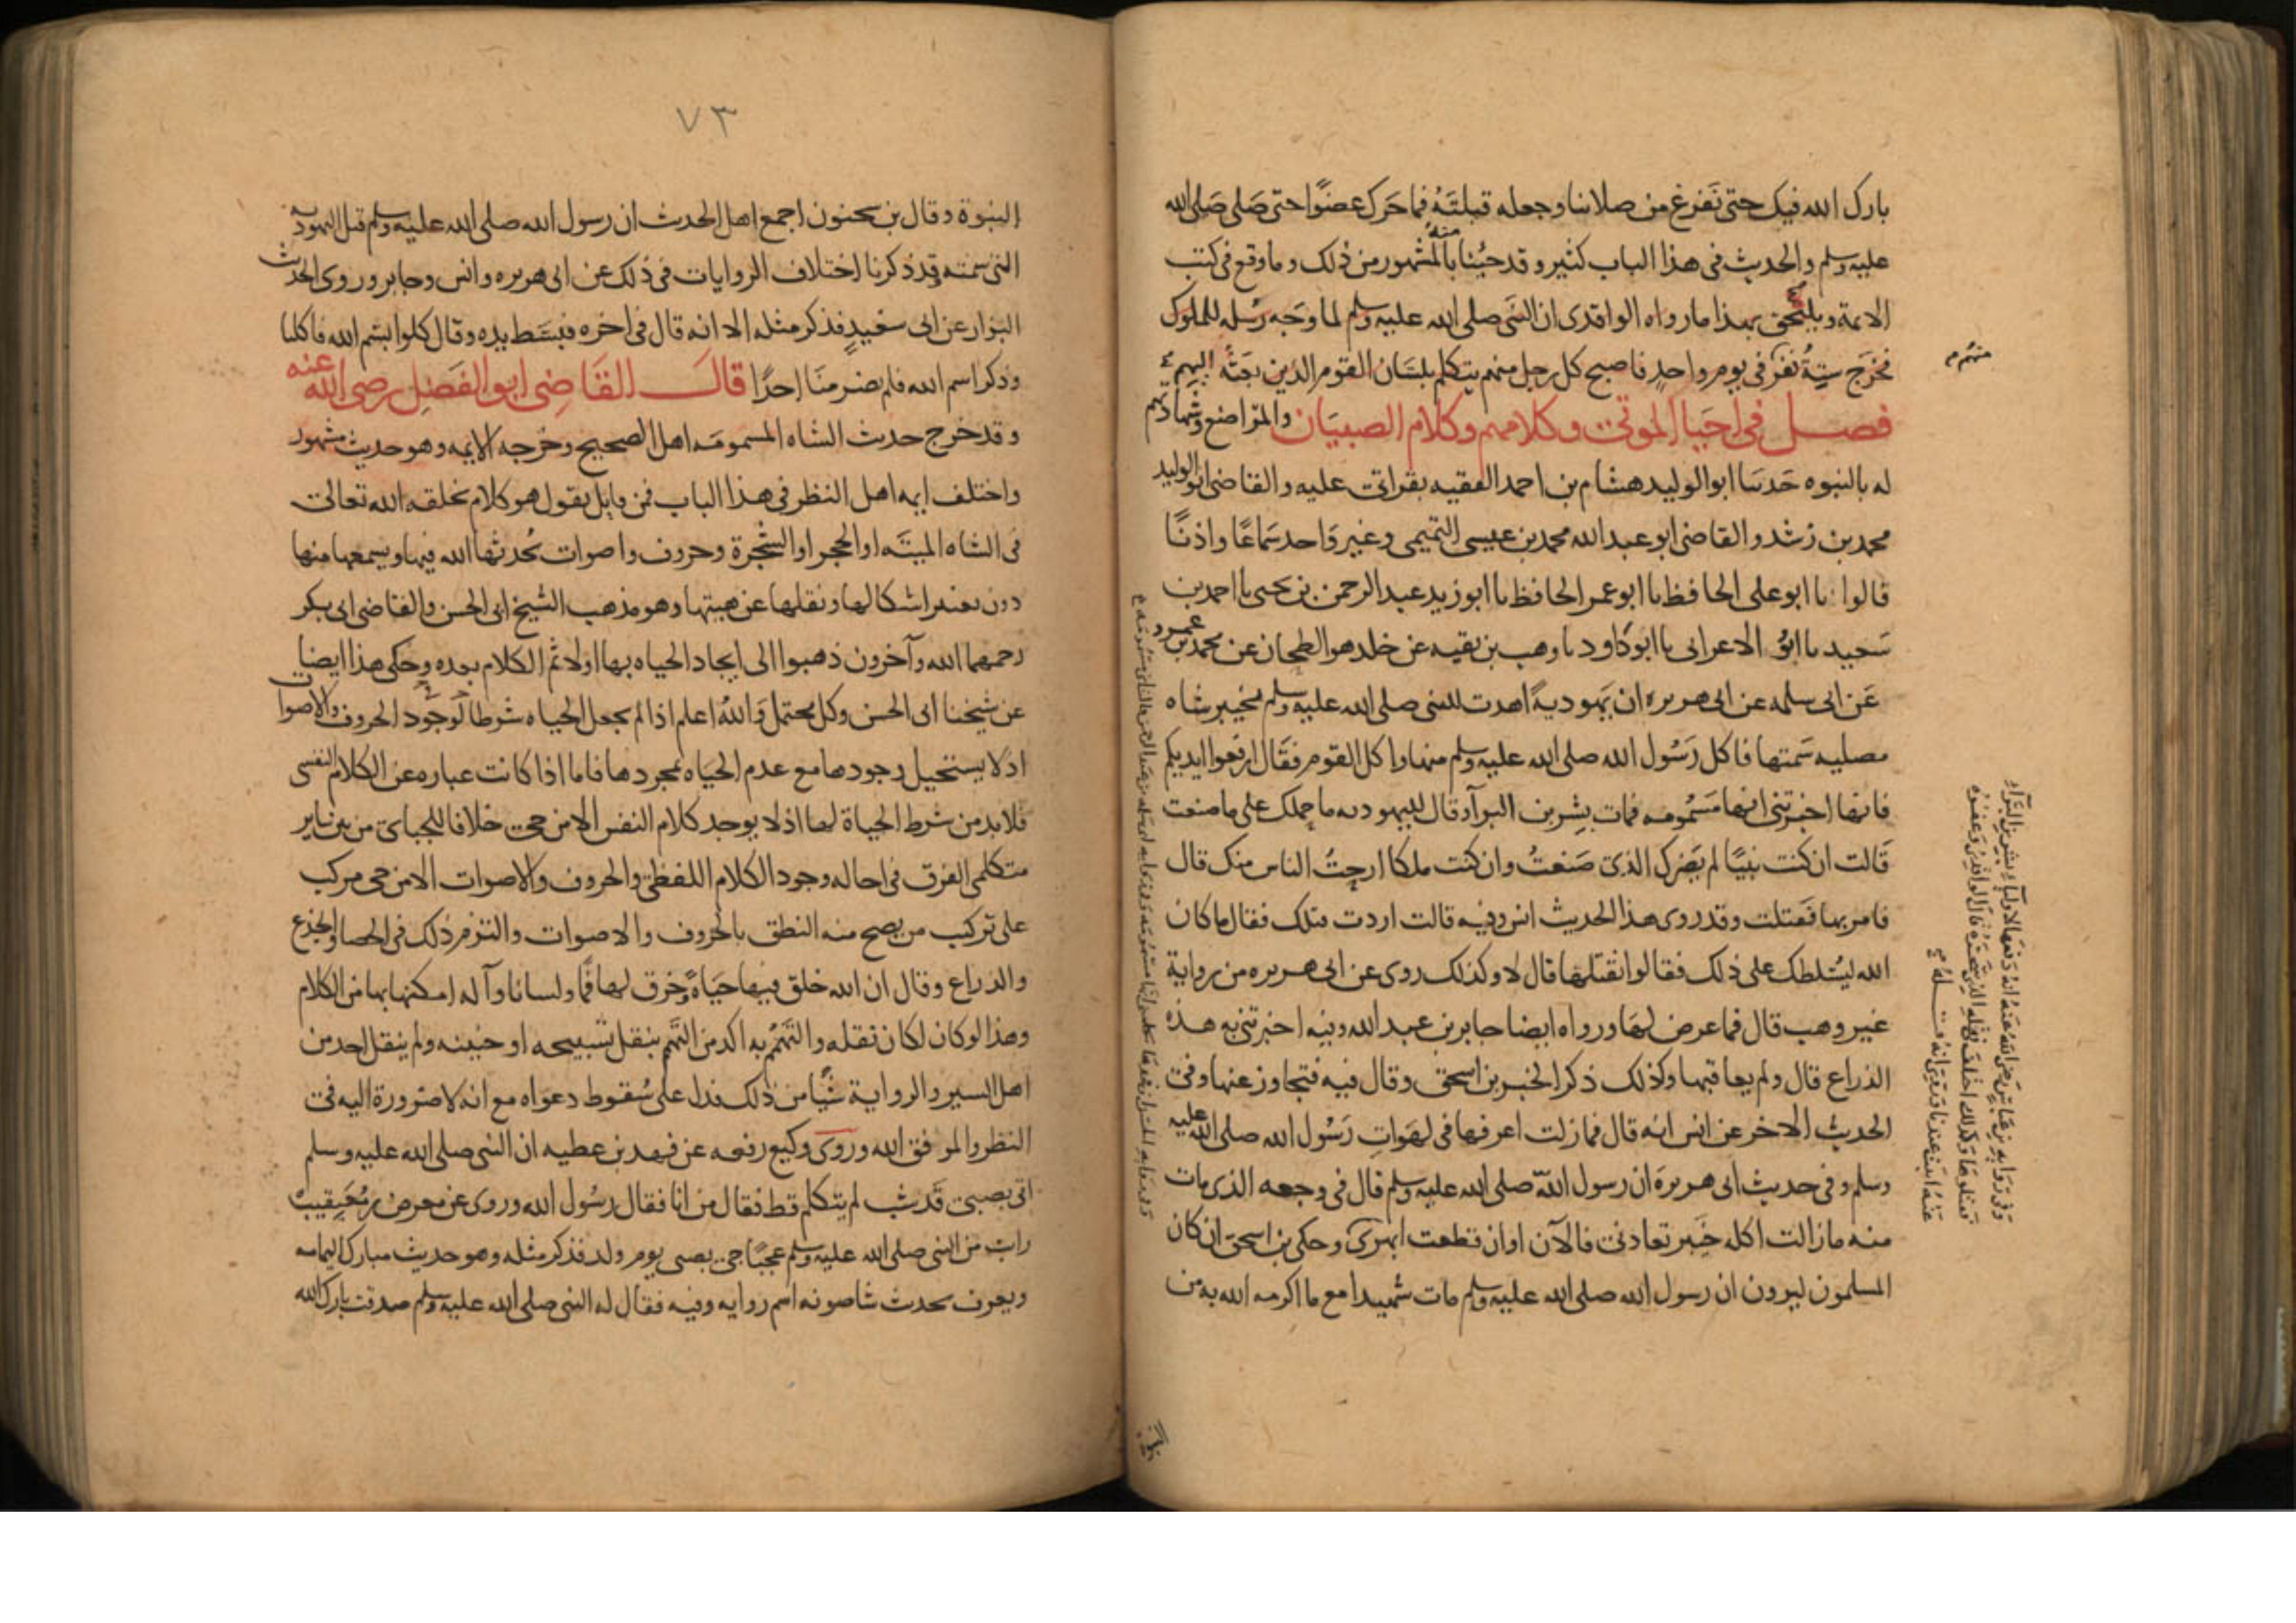 بارك الله فيك حتى نفرغ من صلاتنا وجعله قبلته فما حرك عضوا حتى صلى صلى الله
عليه وسلم والحديث فى هذا الباب كثير وقد جئنا منه بالمشهور من ذلك وما وقع فى كتب
الايمة ويلتحق بهذا مارواه الواقدى ان النبى صلى الله عليه وسلم لما وجه رسله للملوك
فخرج ستة نفر فى يوم واحد فاصبح كل رجل منهم يتكلم بلسان القوم الذين بعثه اليهم
فصل فى احيا الموتى وكلامهم وكلام الصبيان والمراضع وشهادتهم
له بالنبوه حدثنا ابو الوليد هشام بن احمد الفقيه بقراتى عليه والقاضى ابو الوليد
محمد بن رشد والقاضى ابو عبد الله محمد بن عيسى التميمى وغير واحد سماعا واذنا
قالوا نا ابو على الحافظ نا ابو عمر الحافظ نا ابو زيد عبد الرحمن بن يحيى نا احمد بن
سعيد نا ابن الاعرابى نا ابو داود نا وهب بن بقيه عن خلد هو الطحان عن محمد بن عمرو
عن ابى سلمه عن ابى هريره ان يهودية اهدت للنبى صلى الله عليه وسلم بخيبر شاه
مصليه سمتها فاكل رسول الله صلى الله عليه وسلم منها واكل القوم فقال ارفعوا ايديكم
فانها اخبرتنى انها مسمومه فمات بشر بن البرآ وقال لليهوديه ما حملك على ما صنعت
قالت ان كنت نبيا لم يضرك الذى صنعت وان كنت ملكا ارحت الناس منك قال
فامر بها فقتلت وقد روى هذا الحديث انس وفيه قالت اردت قتلك فقال ما كان
الله ليسلطك على ذلك فقالوا نقتلها قال لا وكذلك روى عن ابى هريره من رواية
غير وهب قال فما عرض لها ورواه ايضا جابر بن عبد الله وفيه اخبرتنى به هذه
الذراع قال ولم يعاقبها وكذلك ذكر الخبر بن اسحق وقال فيه فتجاوز عنها وفى
الحديث الاخر عن انس انه قال فما زلت اعرفها فى لهوات رسول الله صلى الله عليه
وسلم وفى حديث ابى هريرة ان رسول الله صلى الله عليه وسلم قال فى وجعه الذى مات
منه ما زالت اكله خيبر تعادنى فالآن اوان قطعت ابهرى وحكى بن اسحق ان كان
المسلمون ليرون ان رسول الله صلى الله عليه وسلم مات شهيدا مع ما اكرمه الله به من
منهم
٧٣
النبوة وقال بن سحنون اجمع اهل الحديث ان رسول الله صلى الله عليه وسلم قتل اليهوديه
التى سمته وقد ذكرنا اختلاف الروايات فى ذلك عن ابى هريره وانس وجابر وروى الحديث
البزار عن ابى سعيد فذكر مثله الا انه قال فى اخره فبسط يده وقال كلوا بسم الله فاكلنا
وذكر اسم الله فلم يضر منا احدا قال القاضى ابو الفضل رضى الله عنه
وقد خرج حديث الشاه المسمومه اهل الصحيح وخرجه الايمه وهو حديث مشهور
واختلف ايمه اهل النظر فى هذا الباب فمن قايل يقول هو كلام يخلقه الله تعالى
فى الشاه الميته او الحجر او الشجرة وحروف واصوات يحدثها الله فيها ويسمعها منها
دون تغيير اشكالها ونقلها عن هيتها وهو مذهب الشيخ ابى الحسن والقاضى ابى بكر
رحمهما الله وآخرون ذهبوا الى ايجاد الحياه بها اولا ثم الكلام بعده وحكى هذا ايضا
عن شيخنا ابى الحسن وكل محتمل والله اعلم اذا لم يجعل الحياه شرطا لوجود الحروف والاصوات
اذ لا يستحيل وجودها مع عدم الحياه بمجردها فاما اذا كانت عباره عن الكلام النفسى
فلا بد من شرط الحياة لها اذ لا يوجد كلام النفس الا من حى خلافا للجباى من بين ساير
متكلمى الفرق فى احاله وجود الكلام اللفظى والحروف والاصوات الا من حى مركب
على تركيب من يصح منه النطق بالحروف والاصوات والتزم ذلك فى الحصا والجذع
والذراع وقال ان الله خلق فيها حياة وخرق لها فما ولسانا وآله امكنها بها من الكلام
وهذا لو كان لكان نقله والتهمم به اكد من التهمم بنقل تسبيحه او حنينه ولم ينقل احد من
اهل السير والرواية شيا من ذلك فدل على سقوط دعواه مع انه لا ضرورة اليه فى
النظر والموفق الله وروى وكيع رفعه عن فهد بن عطيه ان النبى صلى الله عليه وسلم
اتى بصبى قد شب لم يتكلم قط فقال من انا فقال رسول الله وروى عن معرض بن معيقيب
رايت من النبى صلى الله عليه وسلم عجبا جى بصبى يوم ولد فذكر مثله وهو حديث مبارك اليمامه
ويعرف بحديث شاصونه اسم راويه وفيه فقال له النبى صلى الله عليه وسلم صدقت بارك الله